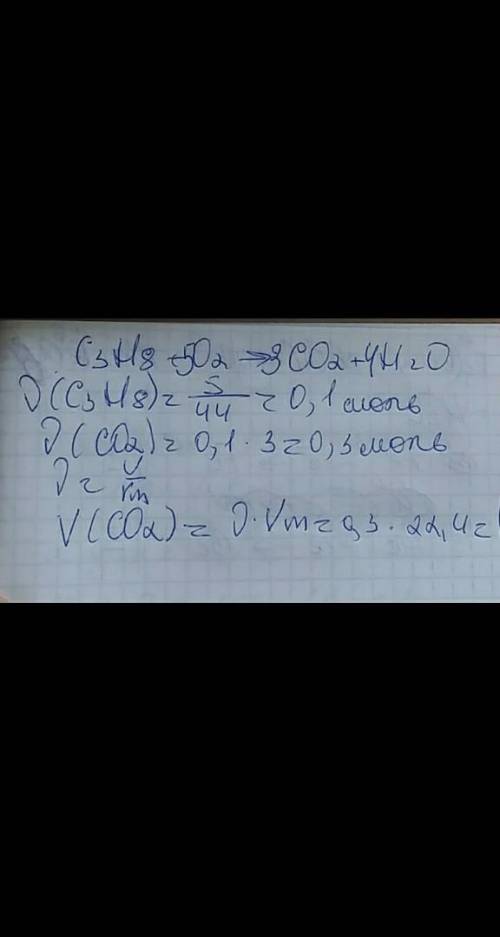 C3H8 + 5O2 → 3CO2 + 4H2O
ν(C3H8) = 5/44 = 0,1 моль
ν(CO2) = 0,1 · 3 = 0,3 моль
ν = V/Vm
V(CO2) = ν · Vm = 0,3 · 22,4 =